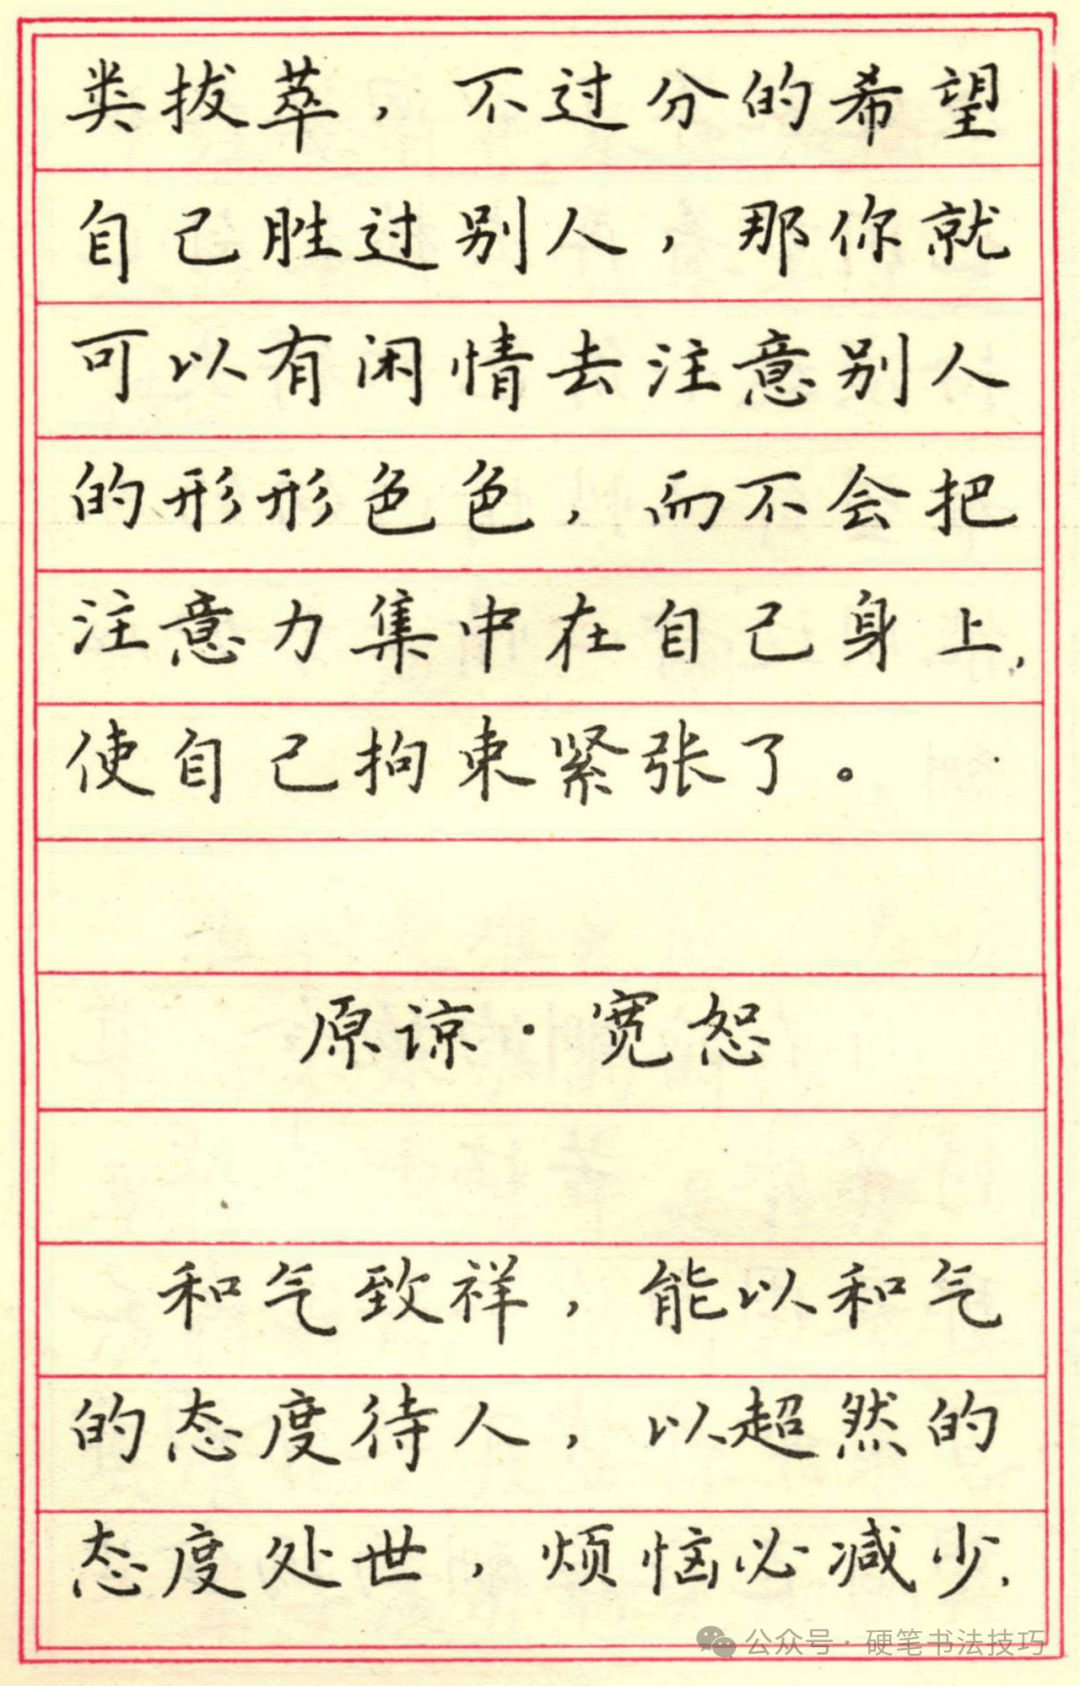 类拔萃，不过分的希望
自己胜过别人，那你就
可以有闲情去注意别人
的形形色色，而不会把
注意力集中在自己身上，
使自己拘束紧张了。
原谅·宽恕
和气致祥，能以和气
的态度待人，以超然的
态度处世，烦恼必减少，
公众号·硬笔书法技巧